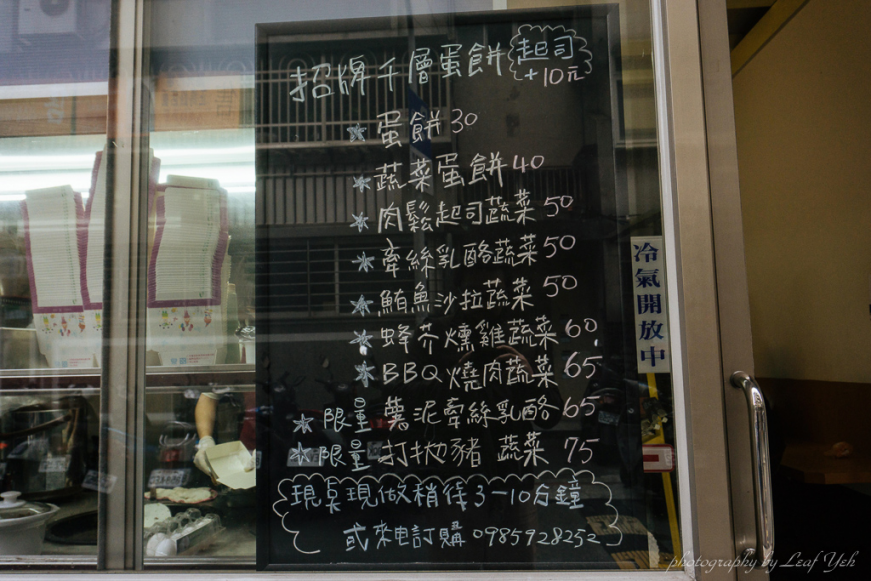 招牌千層蛋餅
起司
+10元
蛋餅30
蔬菜蛋餅40
肉鬆起司蔬菜50
牽絲乳酪蔬菜50
鮪魚沙拉蔬菜50
蜂芥燻雞蔬菜60
BBQ燒肉蔬菜65
限量 薯泥牽絲乳酪65
限量 打拋豬 蔬菜 75
現點現做稍待3-10分鐘
或來電訂購 0985928252
冷氣開放中
photography by Leaf Yeh